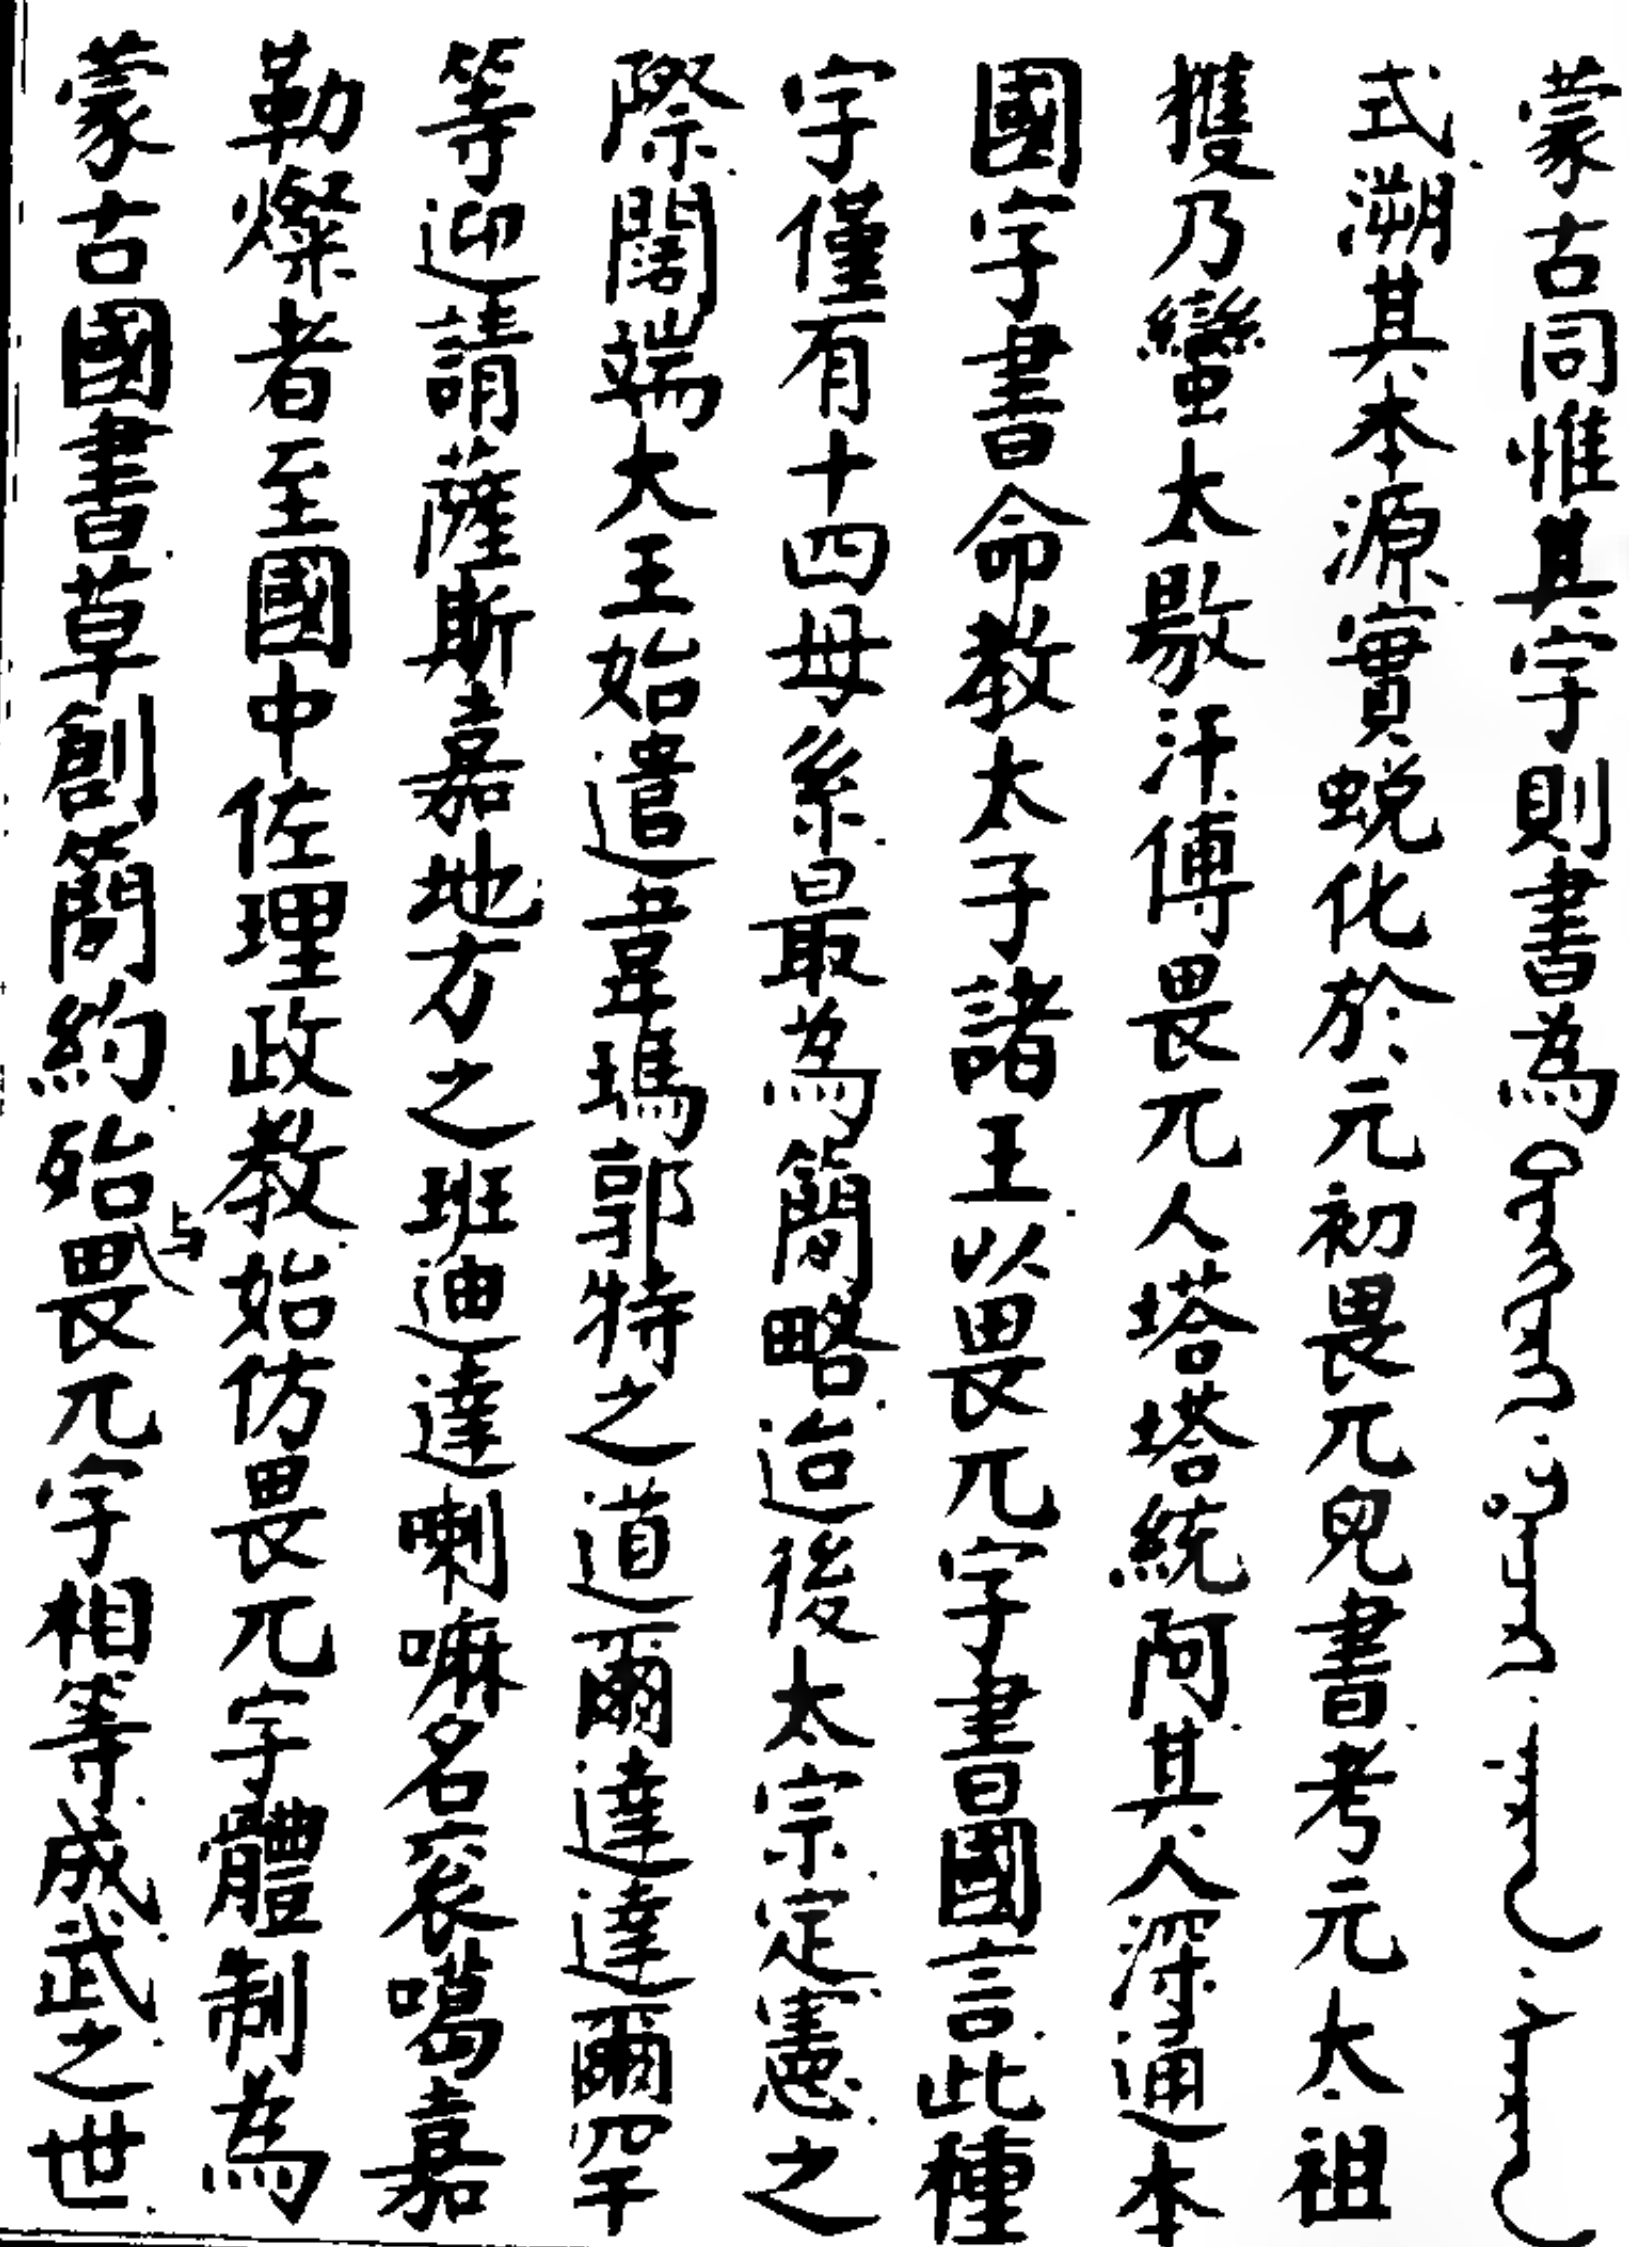 蒙古同惟其字則書為
式溯其本源實蛻化於元初畏兀兒書考元太祖
獲乃蠻太敭汗傅畏兀人塔塔統阿其人深通本
國字書命教太子諸王以畏兀字書國言此種
字僅有十四母系最為簡略迨後太宗定憲之
際闊端大王始遣韋瑪郭特之道爾達達爾罕
等迎請薩斯嘉地方之班迪達喇嘛名衮噶嘉
勒燦者至國中佐理政教始仿畏兀字體制為
蒙古國書草創簡約殆与畏兀字相等成武之世